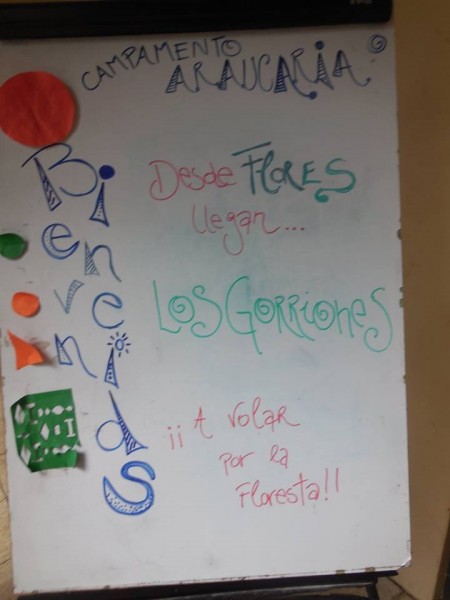 CAMPAMENTO
ARAUCARIA
Bienvenidas
Desde FLORES
llegan...
LOS GORRIONES
¡¡A volar
por la
Floresta!!